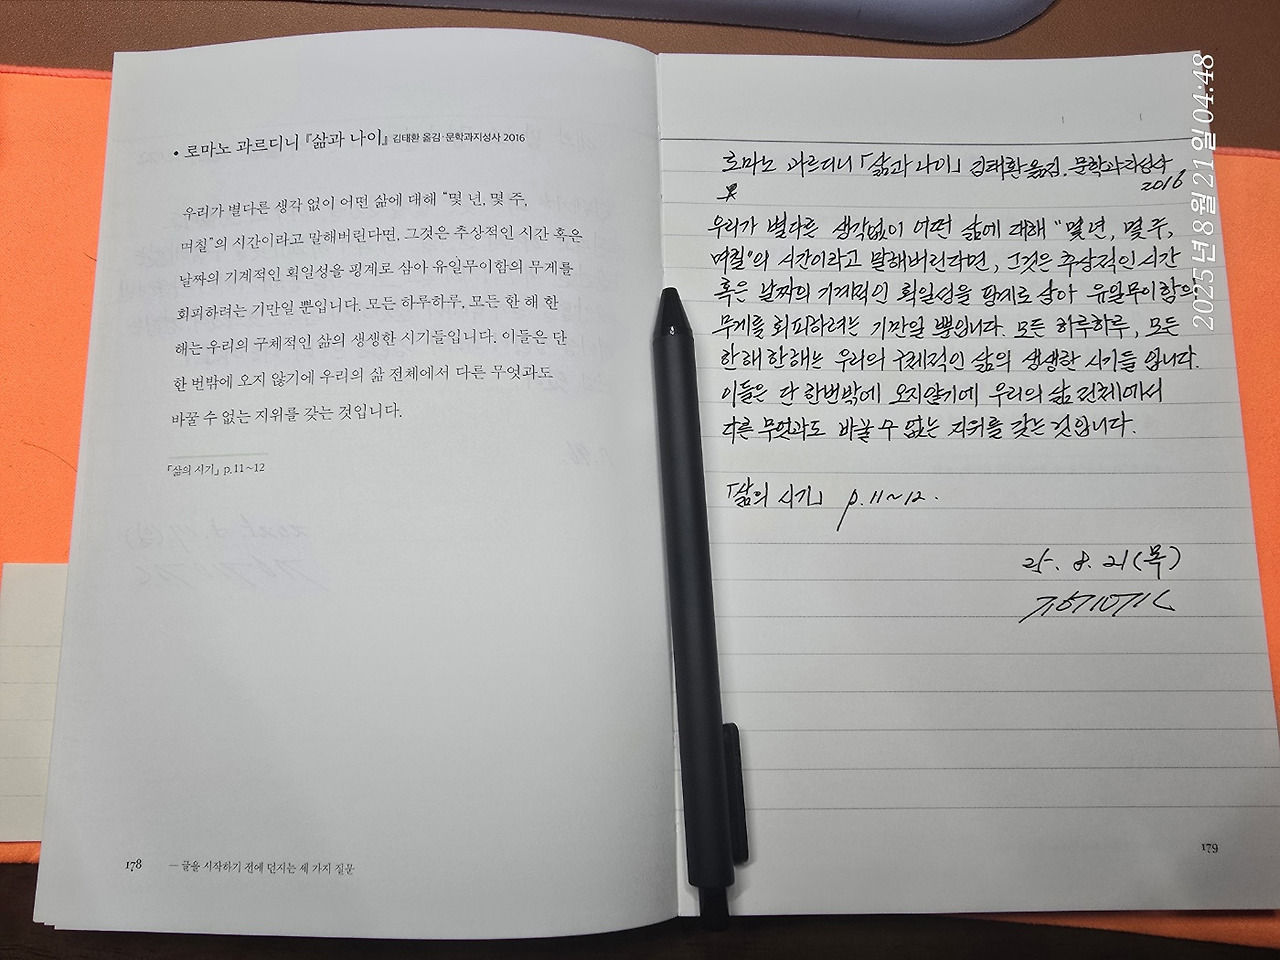 • 로마노 과르디니 『삶과 나이』 김태환 옮김·문학과지성사 2016
우리가 별다른 생각 없이 어떤 삶에 대해 “몇 년, 몇 주,
며칠”의 시간이라고 말해버린다면, 그것은 추상적인 시간 혹은
날짜의 기계적인 획일성을 핑계로 삼아 유일무이함의 무게를
회피하려는 기만일 뿐입니다. 모든 하루하루, 모든 한 해 한
해는 우리의 구체적인 삶의 생생한 시기들입니다. 이들은 단
한 번밖에 오지 않기에 우리의 삶 전체에서 다른 무엇과도
바꿀 수 없는 지위를 갖는 것입니다.
「삶의 시기」 p.11~12
178 — 글을 시작하기 전에 던지는 세 가지 질문
로마노 과르디니 「삶과 나이」 김태환 옮김. 문학과지성사
2016
우리가 별다른 생각없이 어떤 삶에 대해 “몇 년, 몇 주,
며칠”의 시간이라고 말해버린다면, 그것은 추상적인 시간
혹은 날짜의 기계적인 획일성을 핑계로 삼아 유일무이함의
무게를 회피하려는 기만일 뿐입니다. 모든 하루하루, 모든
한해 한해는 우리의 구체적인 삶의 생생한 시기들 입니다.
이들은 단 한번밖에 오지않기에 우리의 삶 전체에서
다른 무엇과도 바꿀 수 없는 지위를 갖는 것입니다.
「삶의 시기」 p.11~12.
25. 8. 21(목)
179
2025년 8월 21일 04:48